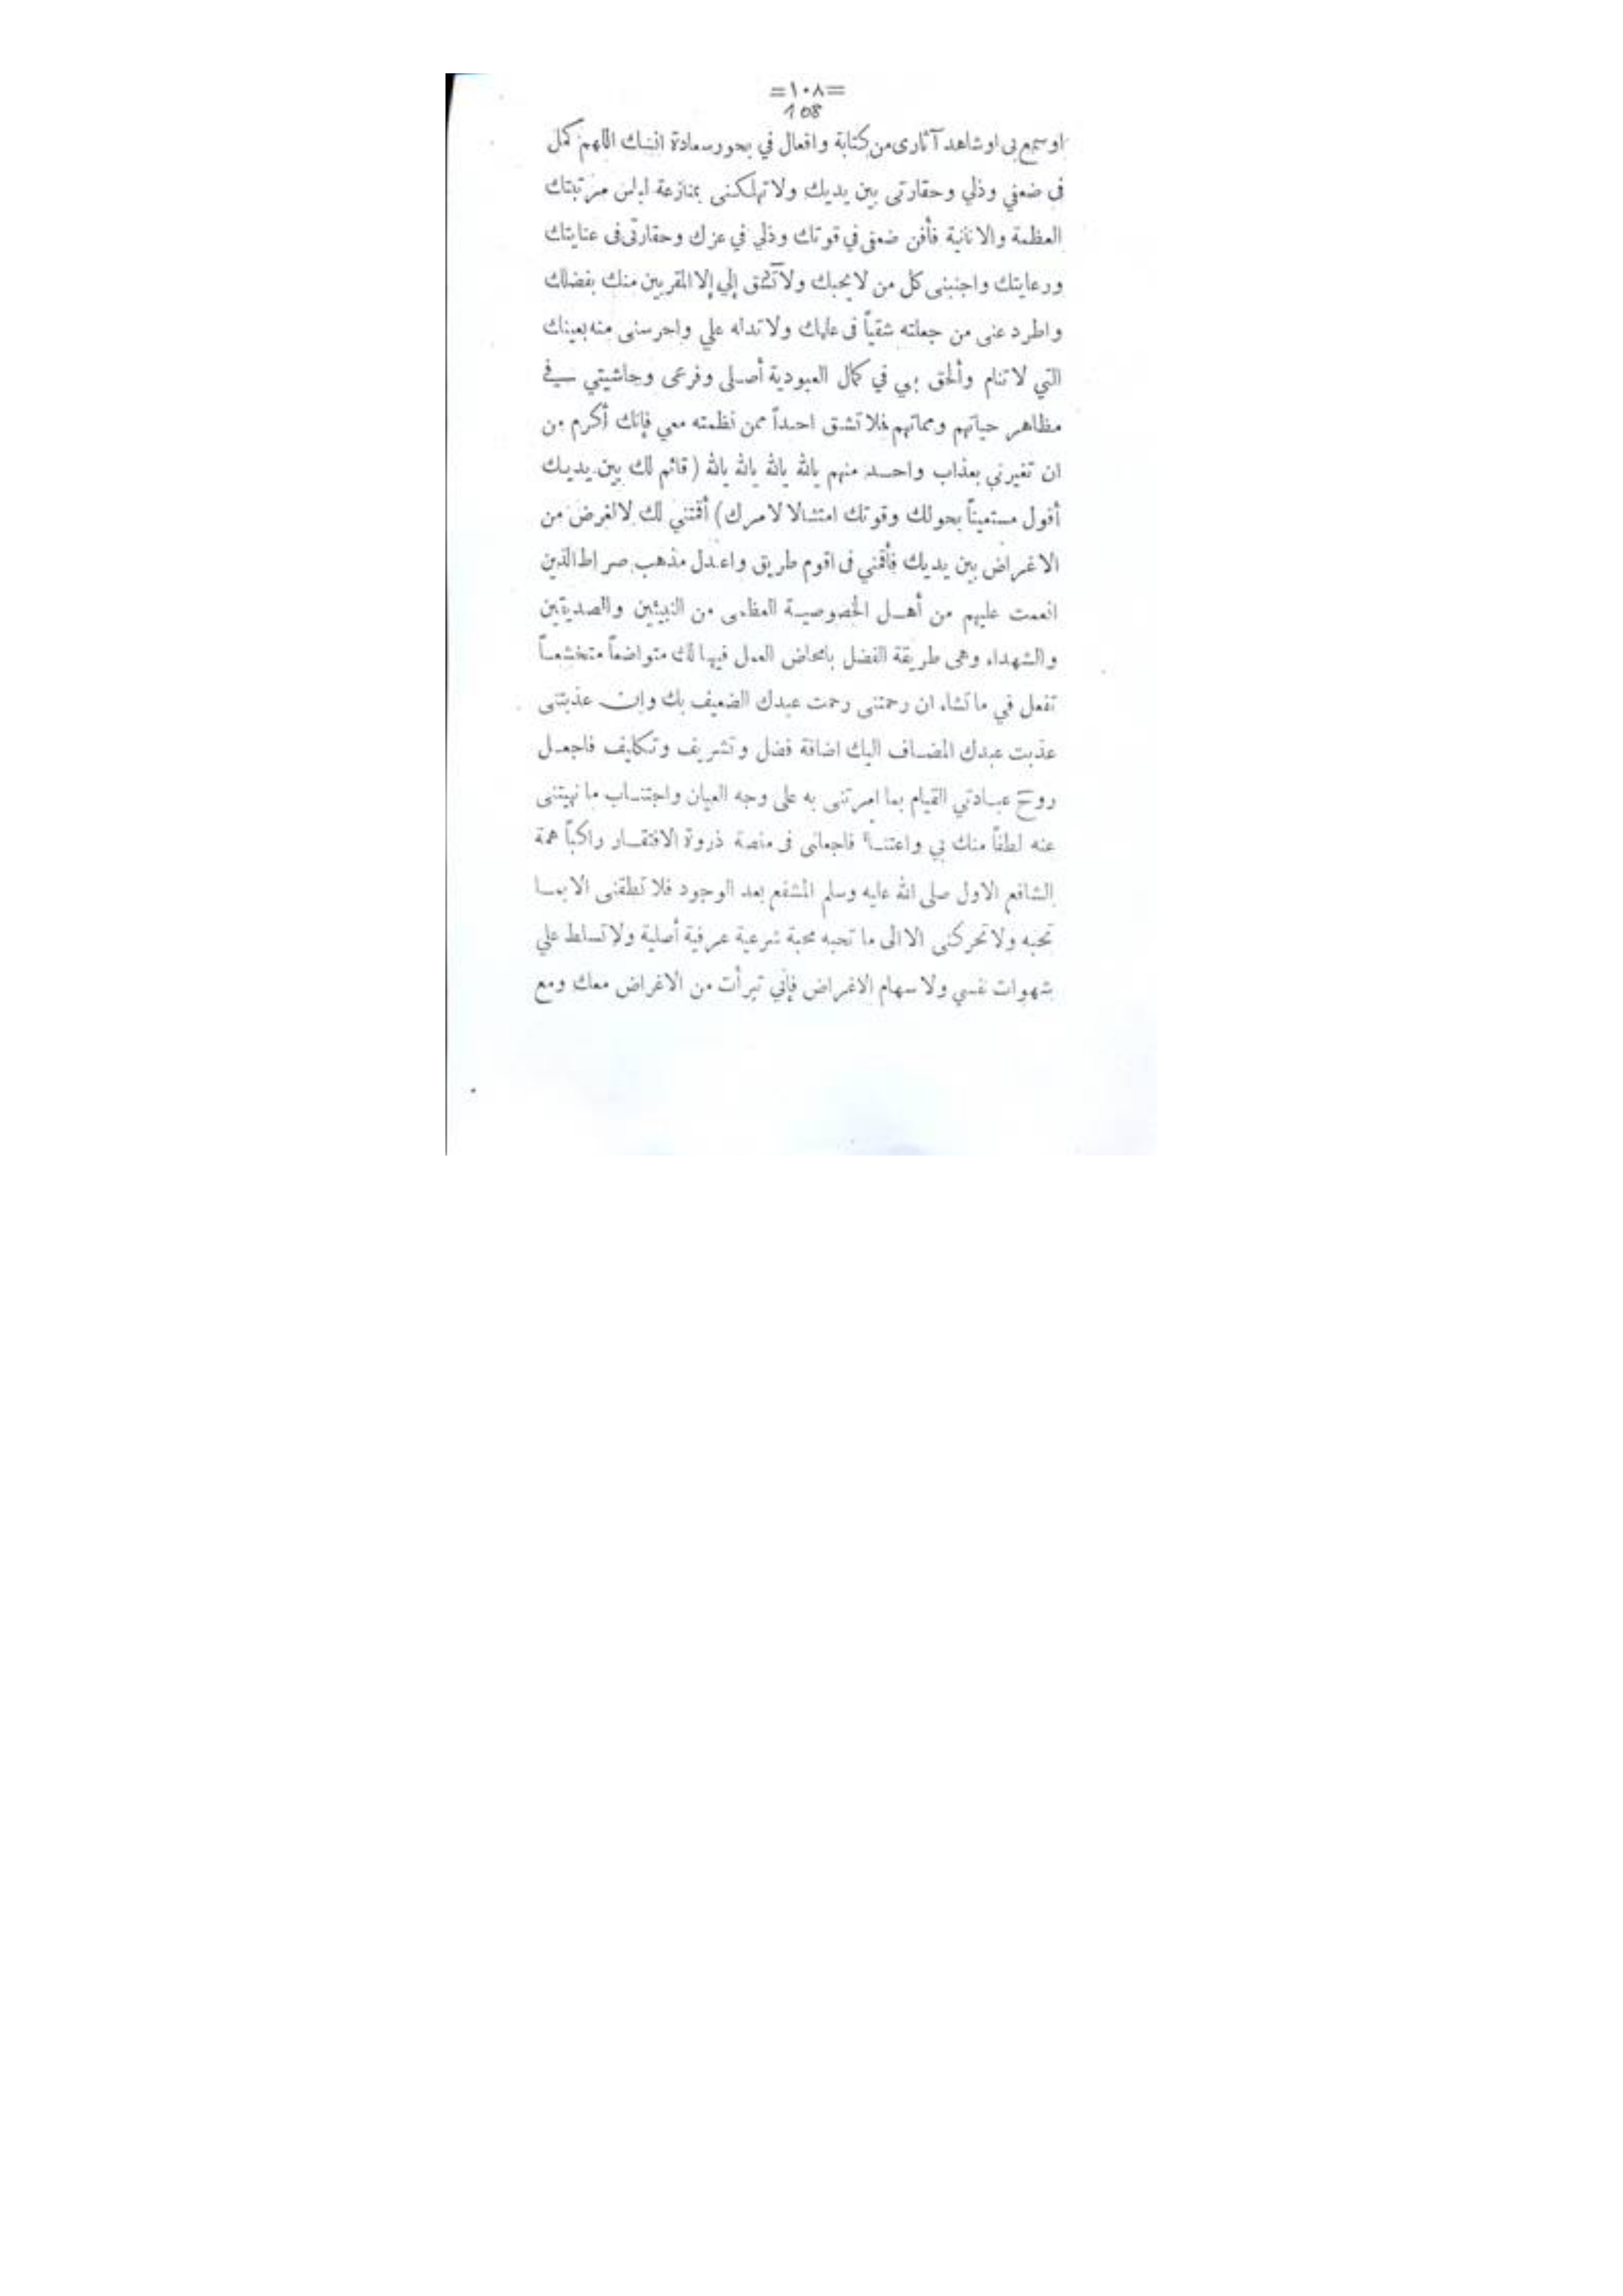 =١٠٨=
108
او سمع بى او شاهد آثارى من كتابة وافعال في بحور سعادة انسك اللهم كمل
فى ضعفي وذلي وحقارتى بين يديك ولا تهلكنى بمنازعة اولس مرتبتك
العظمة والانانية فأفن ضعفى في قوتك وذلي في عزك وحقارتى فى عنايتك
ورعايتك واجنبنى كل من لا يحبك ولا تشق إلي إلا المقربين منك بفضلك
واطرد عنى من جعلته شقياً فى علمك ولا تدله علي واحرسنى منه بعينك
التي لا تنام وألحق بي في كمال العبودية أصلى وفرعى وحاشيتي في
مظاهر حياتهم ومماتهم فلا تشق احداً ممن نظمته معي فإنك أكرم من
ان تغيرني بعذاب واحد منهم يالله يالله يالله يالله (قائم لك بين يديك
أقول مستعيناً بحولك وقوتك امتثالا لامرك) أقمتني لك لا لغرض من
الاغراض بين يديك فأقمني فى اقوم طريق واعدل مذهب صراط الذين
انعمت عليهم من أهل الخصوصية العظمى من النبيئين والصديقين
والشهداء وهى طريقة الفضل بامحاض العمل فيها لك متواضعاً متخشعاً
تفعل في ما تشاء ان رحمتنى رحمت عبدك الضعيف بك وان عذبتنى
عذبت عبدك المضاف اليك اضافة فضل وتشريف وتكليف فاجعل
روح عبادتي القيام بما امرتنى به على وجه العيان واجتناب ما نهيتنى
عنه لطفاً منك بي واعتناء فاجعلنى فى منصة ذروة الافتقار راكباً همة
الشافع الاول صلى الله عليه وسلم المشفع بعد الوجود فلا تطقنى الا بما
تحبه ولا تحركنى الا الى ما تحبه محبة شرعية عرفية أصلية ولا تسلط علي
شهوات نفسي ولا سهام الاغراض فإني تبرأت من الاغراض معك ومع